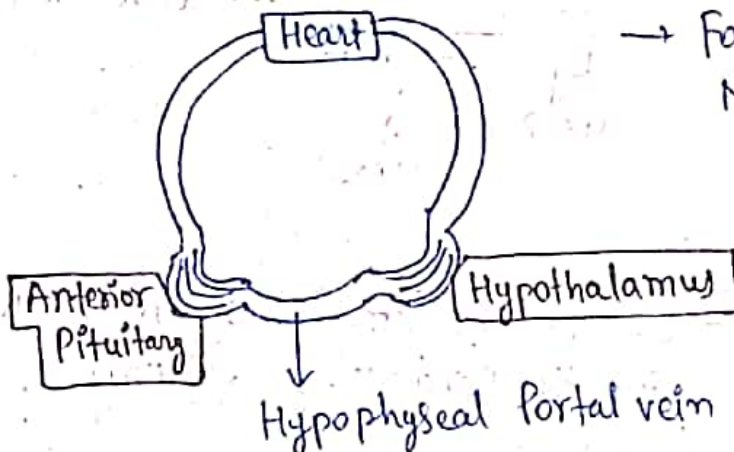 Heart
→ Fo
N
Anterior
Pituitary
Hypothalamus
Hypophyseal Portal vein